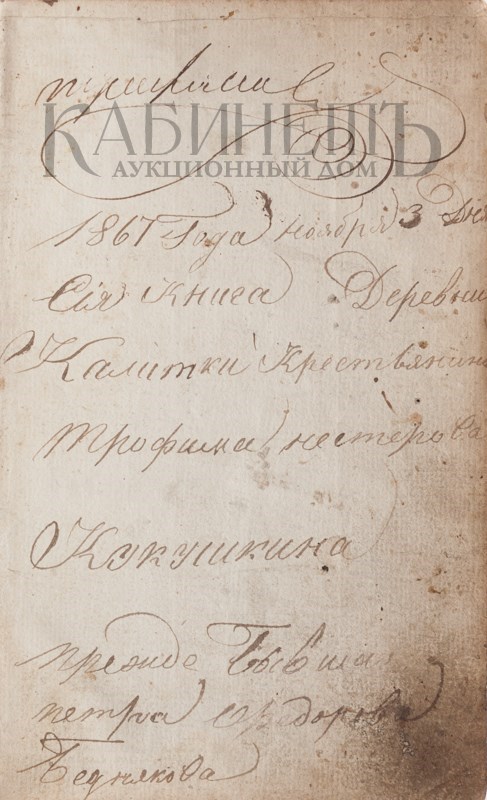 КАБИНЕТЪ
АУКЦИОННЫЙ ДОМ
1867 Года ноября 3 дня
Сія Книга Деревни
Калитки Крествянина
трофима нестерова
Кукушкина
прежде Бывша
петра Федорова
Беднякова